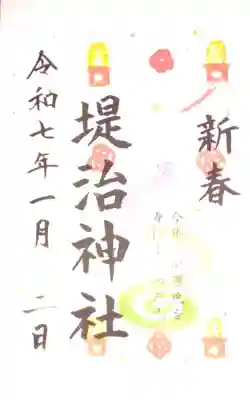 新春
堤治神社
令和七年一月二日